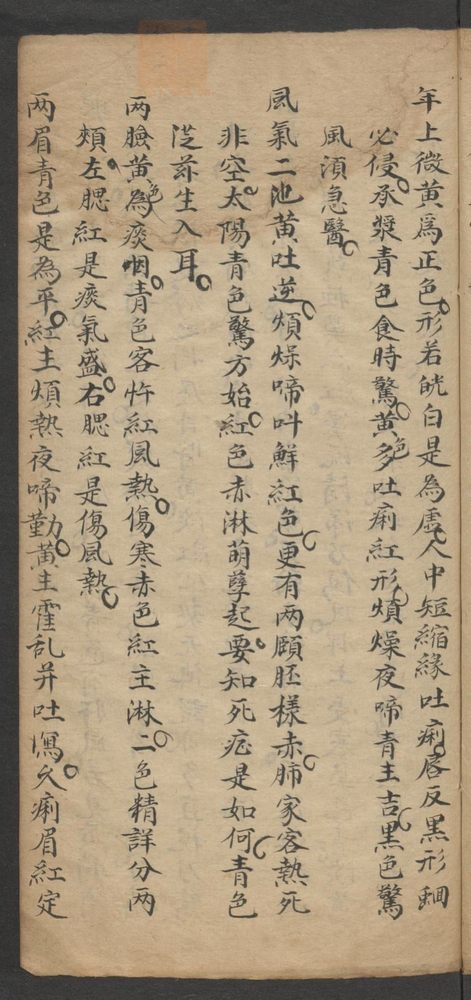 年上微黄爲正色形若皝白是為虛人中短縮緣吐痢唇反黑形蛔
必侵承漿青色食時驚黄色多吐痢紅形煩燥夜啼青主吉黑色驚
風湏急醫
風氣二池黄吐逆煩燥啼叫鮮紅色更有两頤胚様赤肺家客熱死
非空太陽青色驚方始紅色赤淋萌孽起要知死症是如何青色
従茲生入耳
两臉黄色為痰咽青色客忤紅風熱傷寒赤色紅主淋二色精詳分两
頰左腮紅是痰氣盛右腮紅是傷風熱
两眉青色是為平紅主煩熱夜啼勤黄主霍乱并吐瀉久痢眉紅定